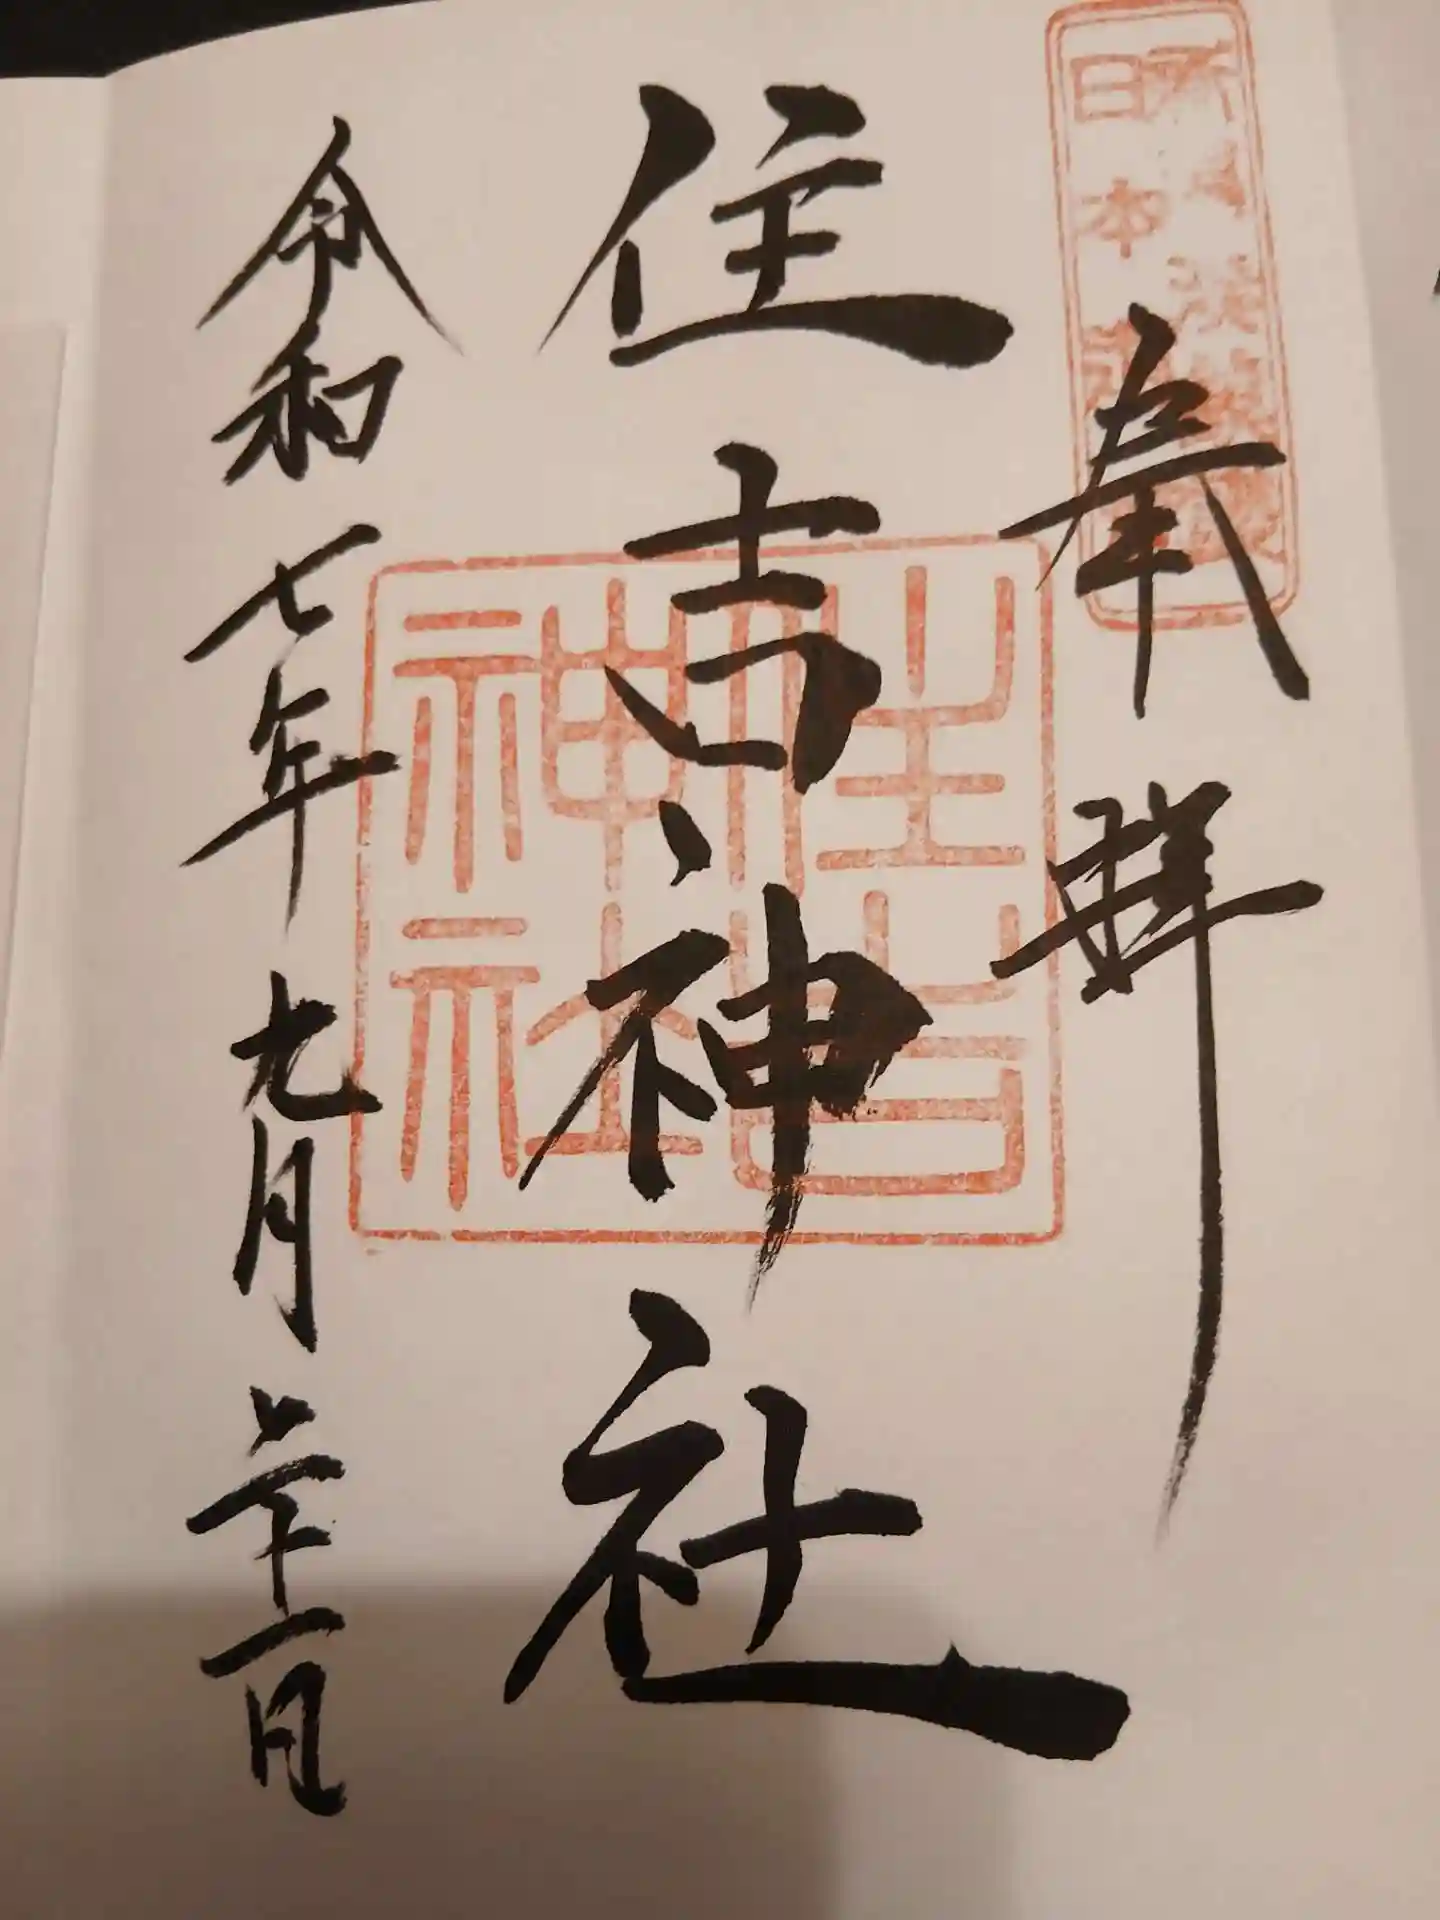 日本
奉拝
住吉神社
住吉
神社
令和七年九月二十一日